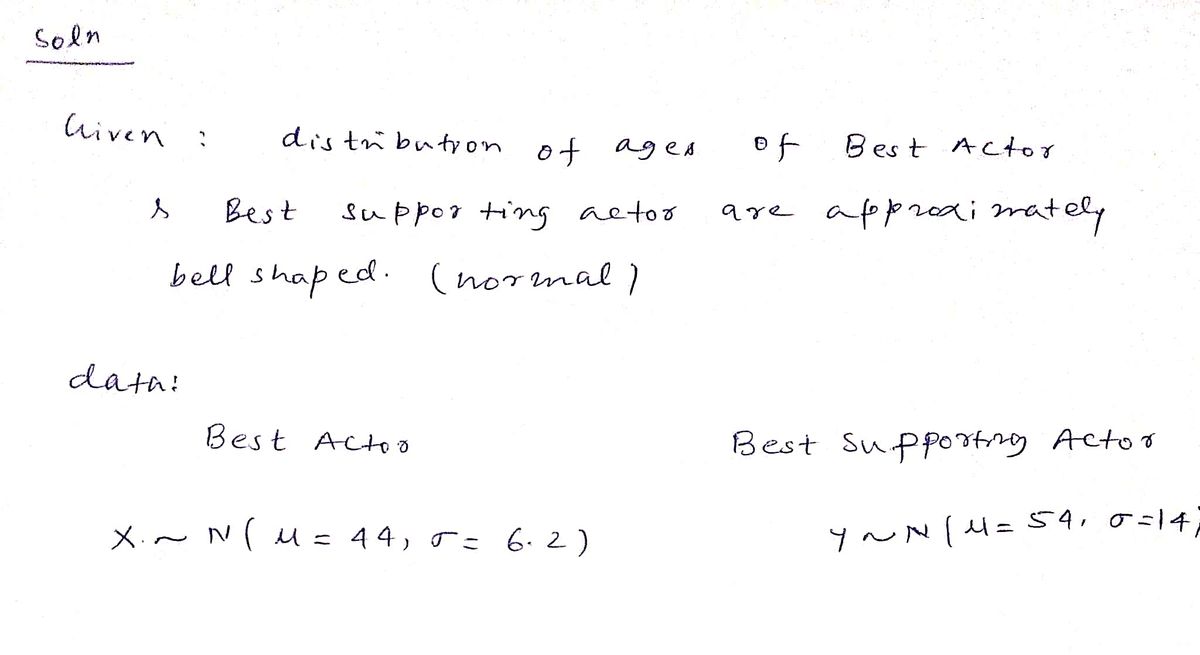 Soln
Given : distribution of ages of Best Actor
& Best supporting actor are approximately
bell shaped. (normal)
data:
Best Actor Best Supporting Actor
X ~ N( μ = 44, σ = 6.2) Y ~ N( μ = 54, σ = 14)